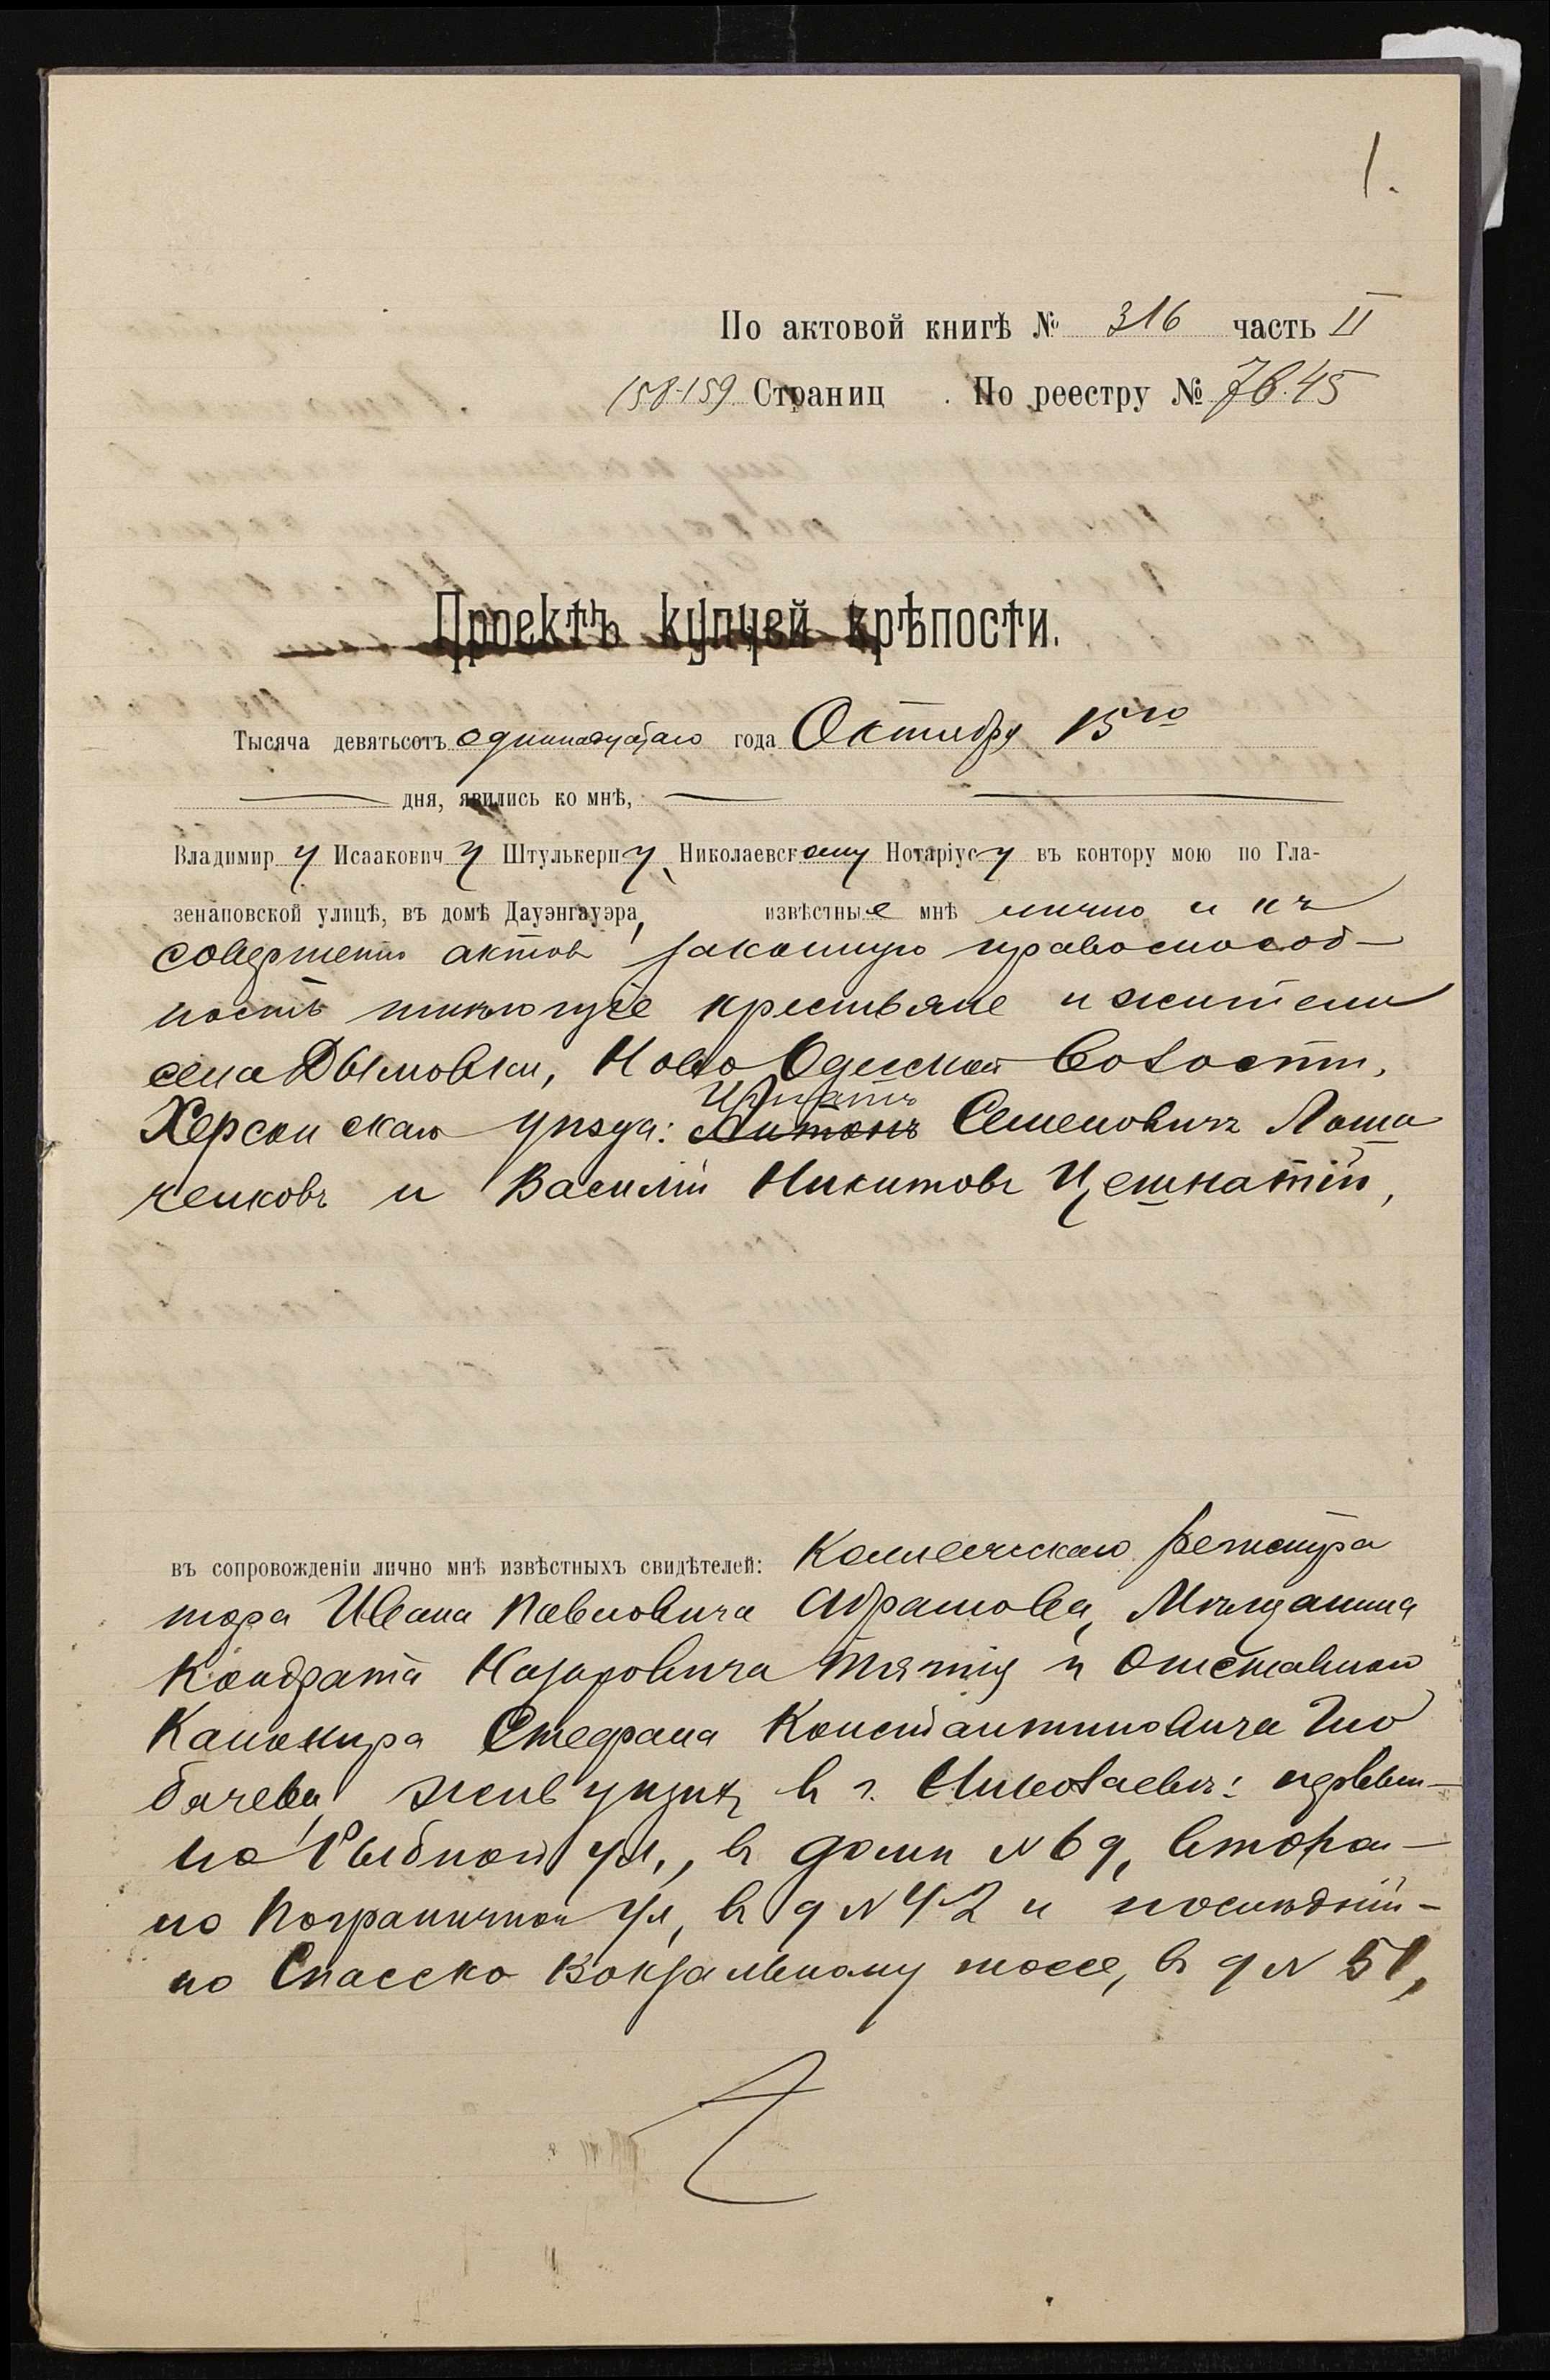 1.
По актовой книгѣ № 316 часть II
158-159 Страниц . По реестру № 7645
Проектъ купчей крѣпости.
Тысяча девятьсотъ одиннадцатаго года Октября 15го
дня, явились ко мнѣ,
Владимиру Исааковичу Штулькерну, Николаевскому Нотаріусу въ контору мою по Гла-
зенаповской улицѣ, въ домѣ Дауэнгауэра, извѣстные мнѣ лично и къ
совершенію актовъ законную правоспособ-
ность имѣющіе крестьяне и жители
села Дымовки, Ново Одесской Волости,
Херсонскаго уѣзда: Антонъ Семеновичъ Лоша
ченковъ и Василій Никитовъ Цешнатій,
въ сопровожденіи лично мнѣ извѣстныхъ свидѣтелей: Коллежскаго Регистра
тора Ивана Павловича Абрамова, Мѣщанина
Кондрата Назаровича и Отставного
Канонира Стефана Константиновича Гло
бачева, живущихъ въ г. Николаевѣ: первый-
по Рыбной ул., въ домѣ № 69, второй-
по Пограничной ул, въ д № 42 и послѣдній-
по Спасско Вокзальному шоссе, въ д № 51,